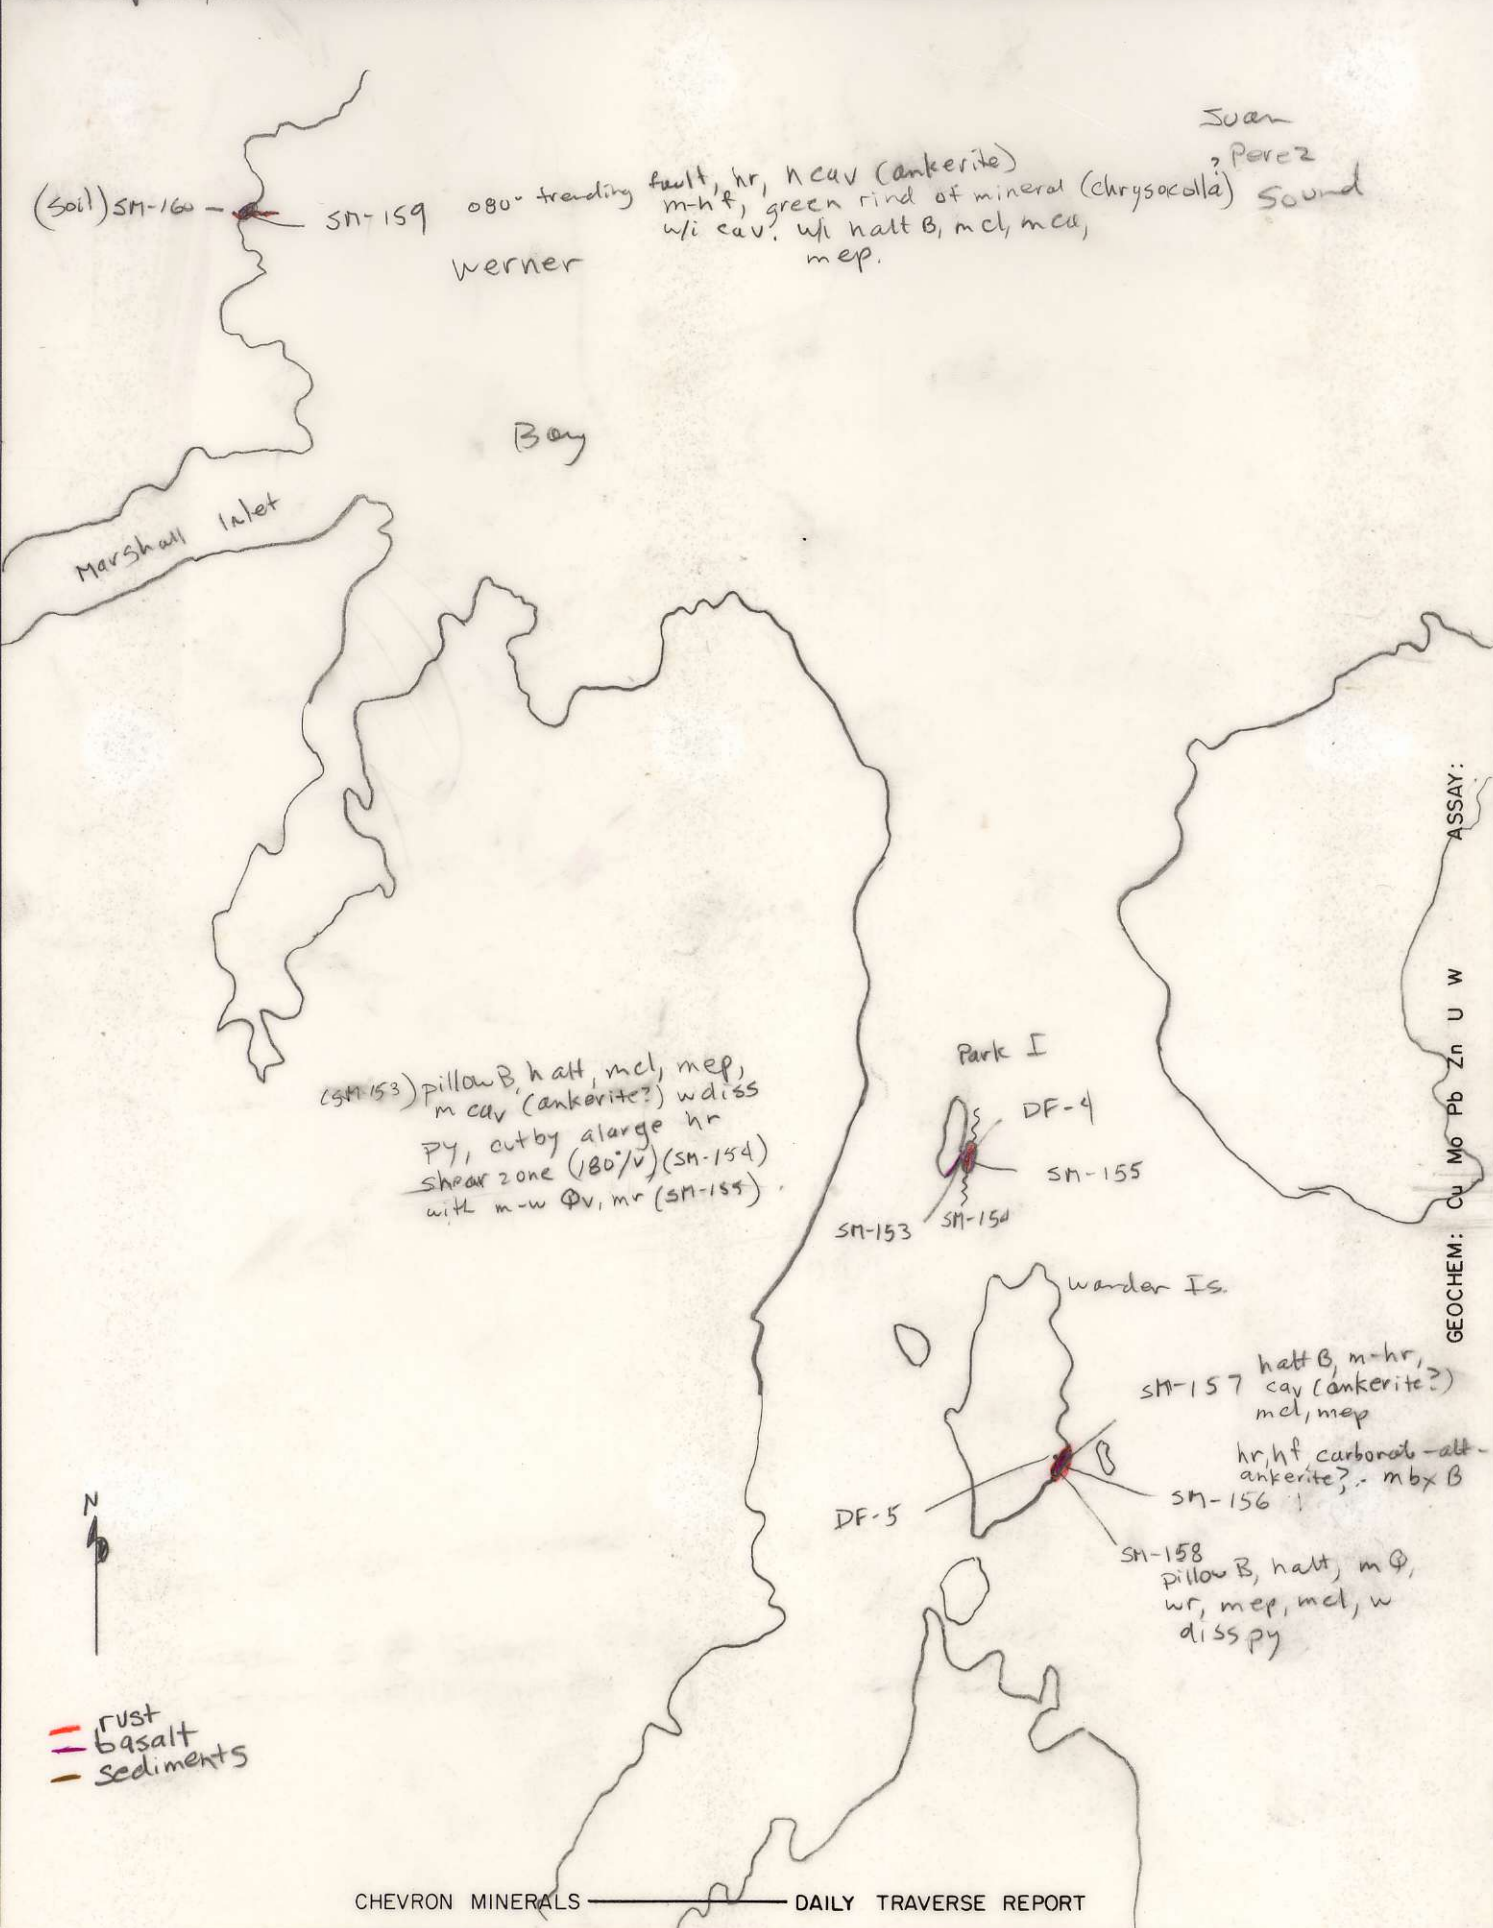 Juan
Perez
Sound
(soil) SM-160
SM-159
080° trending fault, hr, h cav (ankerite)
m-hf, green rind of mineral (chrysocolla?)
w/i cav. w/i halt B, mcl, mca,
mep.
Werner
Bay
Marshall Inlet
ASSAY:
GEOCHEM: Cu Mo Pb Zn U W
Park I
(SM-153) pillow B, h alt, mcl, mep,
m cav (ankerite?) w diss
py, cut by a large hr
shear zone (180°/V) (SM-154)
with m-w Qv, mr (SM-155).
DF-4
SM-155
SM-153
SM-154
Wander Is.
SM-157
halt B, m-hr,
cav (ankerite?)
mcl, mep
hr, hf, carbonate-alt-
ankerite? - mbx B
SM-156
DF-5
SM-158
pillow B, halt, m Q,
wr, mep, mcl, w
diss py
N
rust
basalt
sediments
CHEVRON MINERALS — DAILY TRAVERSE REPORT